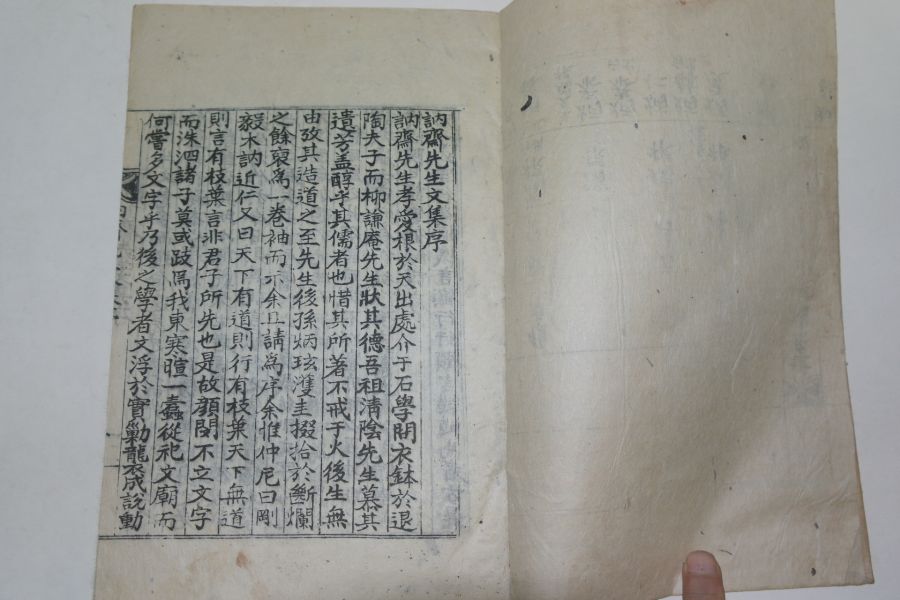 訥齋先生文集序
訥齋先生孝愛根於天出處介于石學問衣鉢於退
陶夫子而柳謙庵先生狀其德吾祖淸陰先生慕其
遺芳盖醇乎其儒者也惜其所著不戒于火後生無
由攷其造道之至先生後孫炳玹濩圭掇拾於斷爛
之餘裒爲一卷袖而示余且請爲序余惟仲尼曰剛
毅木訥近仁又曰天下有道則行有枝葉天下無道
則言有枝葉言非君子所先也是故顔閔不立文字
而洙泗諸子莫或跂焉我東寒暄一蠹從祀文廟而
何嘗多文字乎乃後之學者文浮於實勦龍衣成說動